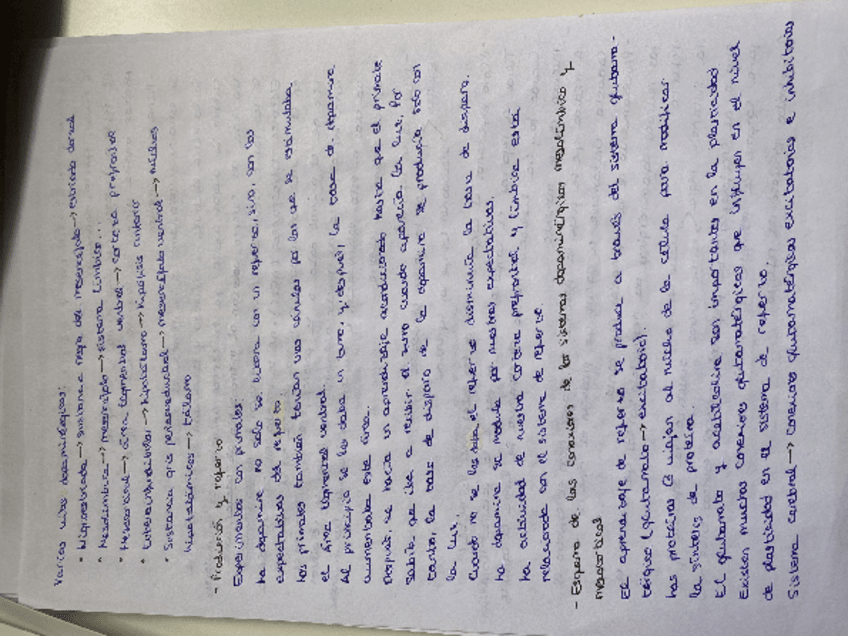 Varias vías dopaminérgicas:
• Nigroestriada → sustancia negra del mesencéfalo → estriado dorsal
• Mesolímbica → mesencéfalo → sistema límbico...
• Mesocortical → área tegmental ventral → corteza prefrontal
• Tuberoinfundibular → hipotálamo → hipófisis anterior
• Sustancia gris periacueductal → mesencéfalo ventral → núcleos
hipotalámicos → tálamo
- Predicción y refuerzo
Experimentos con primates:
La dopamina no solo se libera con un refuerzo, sino, con las
expectativas del refuerzo.
Los primates también tenían una cánula por la que se estimulaba
el área tegmental ventral.
Al principio se les daba un zumo, y después, la tasa de dopamina
aumentaba esta área.
Después, se hacía un aprendizaje condicionado hasta que el primate
sabía que iba a recibir el zumo cuando aparecía la luz. Por
tanto, la tasa de disparo de la dopamina se producía solo con
la luz.
Cuando no se les daba el refuerzo disminuía la tasa de disparo.
La dopamina se modula por nuestras expectativas.
La actividad de nuestra corteza prefrontal y límbica está
relacionada con el sistema de refuerzo.
- Esquema de las conexiones de los sistemas dopaminérgicos mesolímbico y
mesocortical
El aprendizaje de refuerzo se produce a través del sistema glutama-
térgico (glutamato → excitatorio).
Las proteínas G viajan al núcleo de la célula para modificar
la síntesis de proteína.
El glutamato y acetilcolina son importantes en la plasticidad
Existen muchas conexiones glutamatérgicas que influyen en el nivel
de plasticidad en el sistema de refuerzo.
Sistema cerebral → conexiones glutamatérgicas excitatorias e inhibitorias